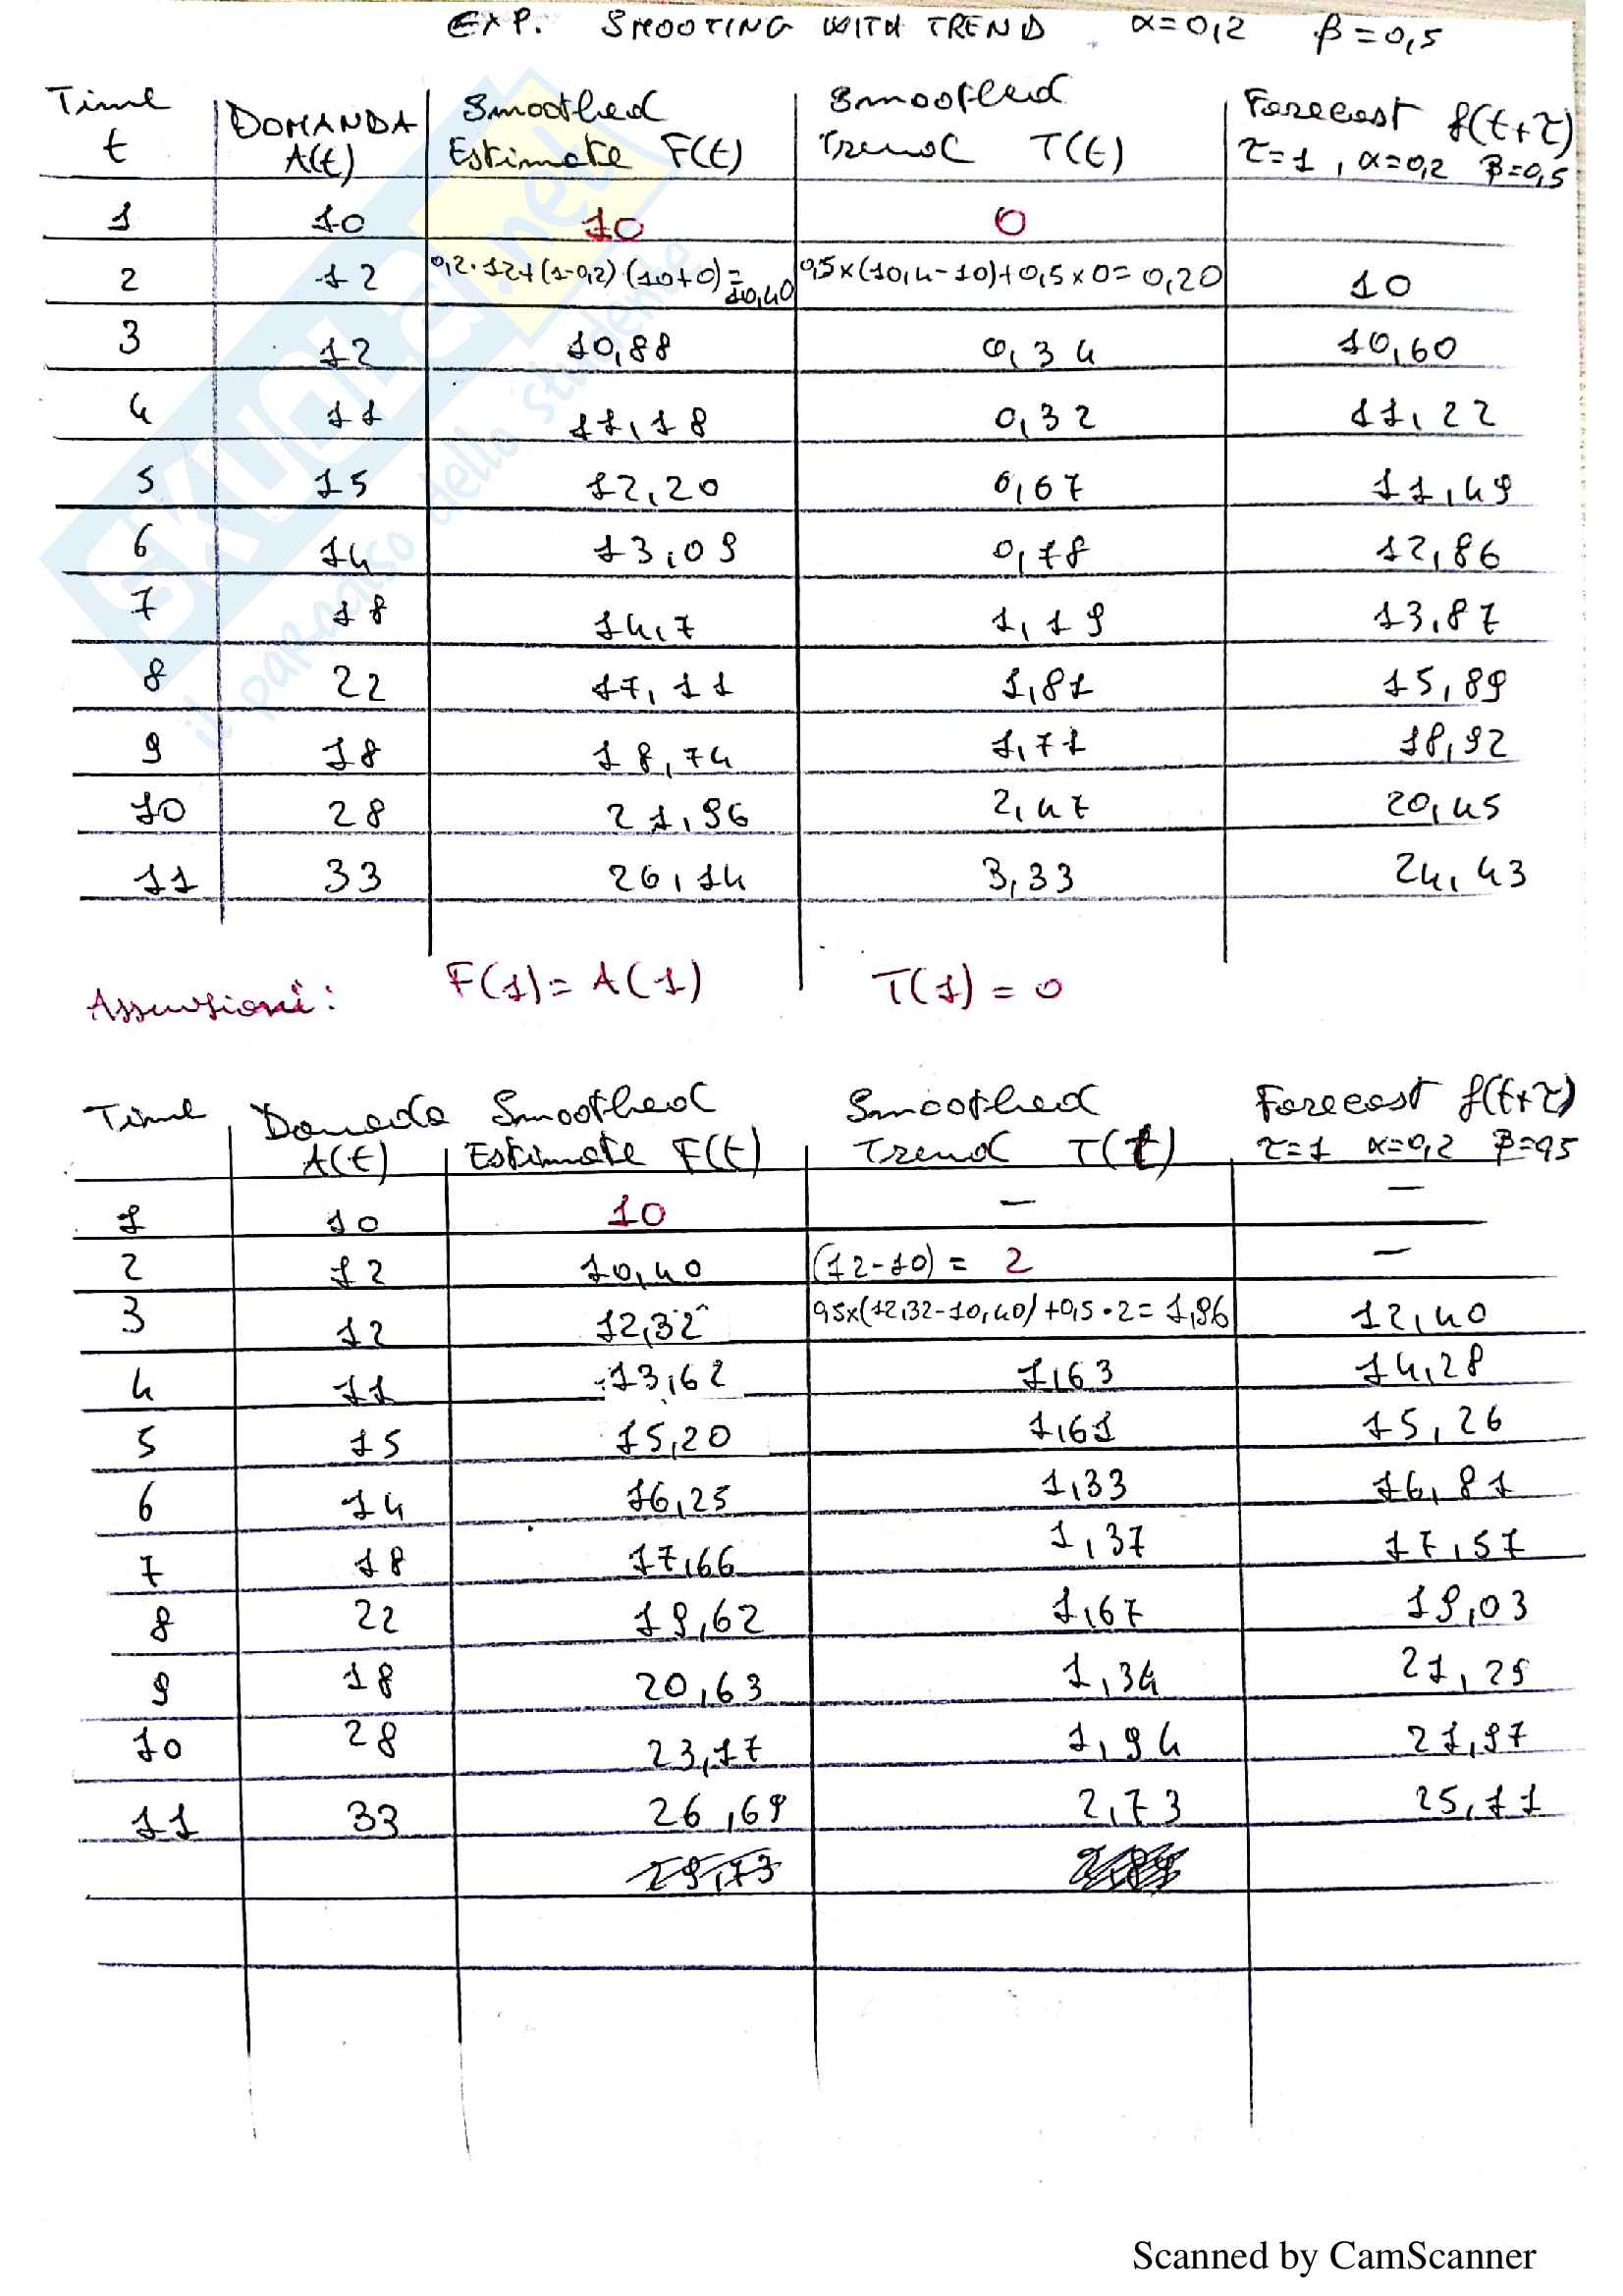 EXP. SMOOTING WITH TREND α=0,2 β=0,5
Time t DOMANDA A(t) Smoothed Estimate F(t) Smoothed Trend T(t) Forecast f(t+τ) τ=1, α=0,2 β=0,5
1 10 10 0
2 12 0,2·12+(1-0,2)·(10+0)=10,40 0,5×(10,4-10)+0,5×0=0,20 10
3 12 10,88 0,34 10,60
4 11 11,18 0,32 11,22
5 15 12,20 0,67 11,49
6 14 13,09 0,78 12,86
7 18 14,7 1,19 13,87
8 22 17,11 1,81 15,89
9 18 18,74 1,71 18,92
10 28 21,96 2,47 20,45
11 33 26,14 3,33 24,43
Assunzioni: F(1)=A(1) T(1)=0
Time Domada A(t) Smoothed Estimate F(t) Smoothed Trend T(t) Forecast f(t+τ) τ=1 α=0,2 β=0,5
1 10 10 — —
2 12 10,40 (12-10)= 2 —
3 12 12,32 0,5×(12,32-10,40)+0,5·2=1,96 12,40
4 11 13,62 1,63 14,28
5 15 15,20 1,61 15,26
6 14 16,25 1,33 16,81
7 18 17,66 1,37 17,57
8 22 19,62 1,67 19,03
9 18 20,63 1,34 21,29
10 28 23,17 1,94 21,97
11 33 26,69 2,73 25,11
29,73
SKUOLA.net
il paradiso dello studente
Scanned by CamScanner